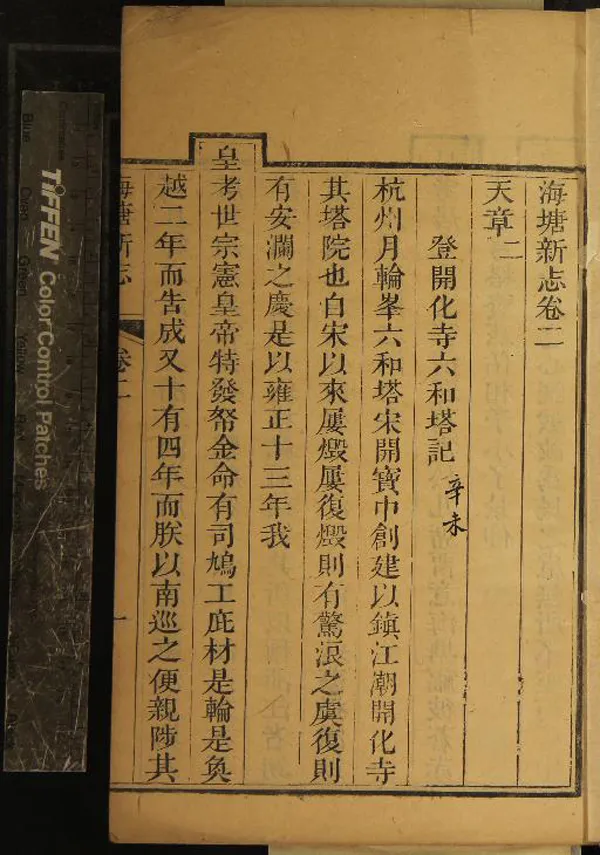 海塘新志卷二
天章二
登開化寺六和塔記 辛未
杭州月輪峯六和塔宋開寶中創建以鎮江潮開化寺
其塔院也自宋以來屢燬屢復燬則有驚浪之虞復則
有安瀾之慶是以雍正十三年我
皇考世宗憲皇帝特發帑金命有司鳩工庀材是輪是奐
越二年而告成又十有四年而朕以南巡之便親陟其
海塘新志 卷二 一
TIFFEN Color Control Patches
Blue
Cyan
Green
Yellow